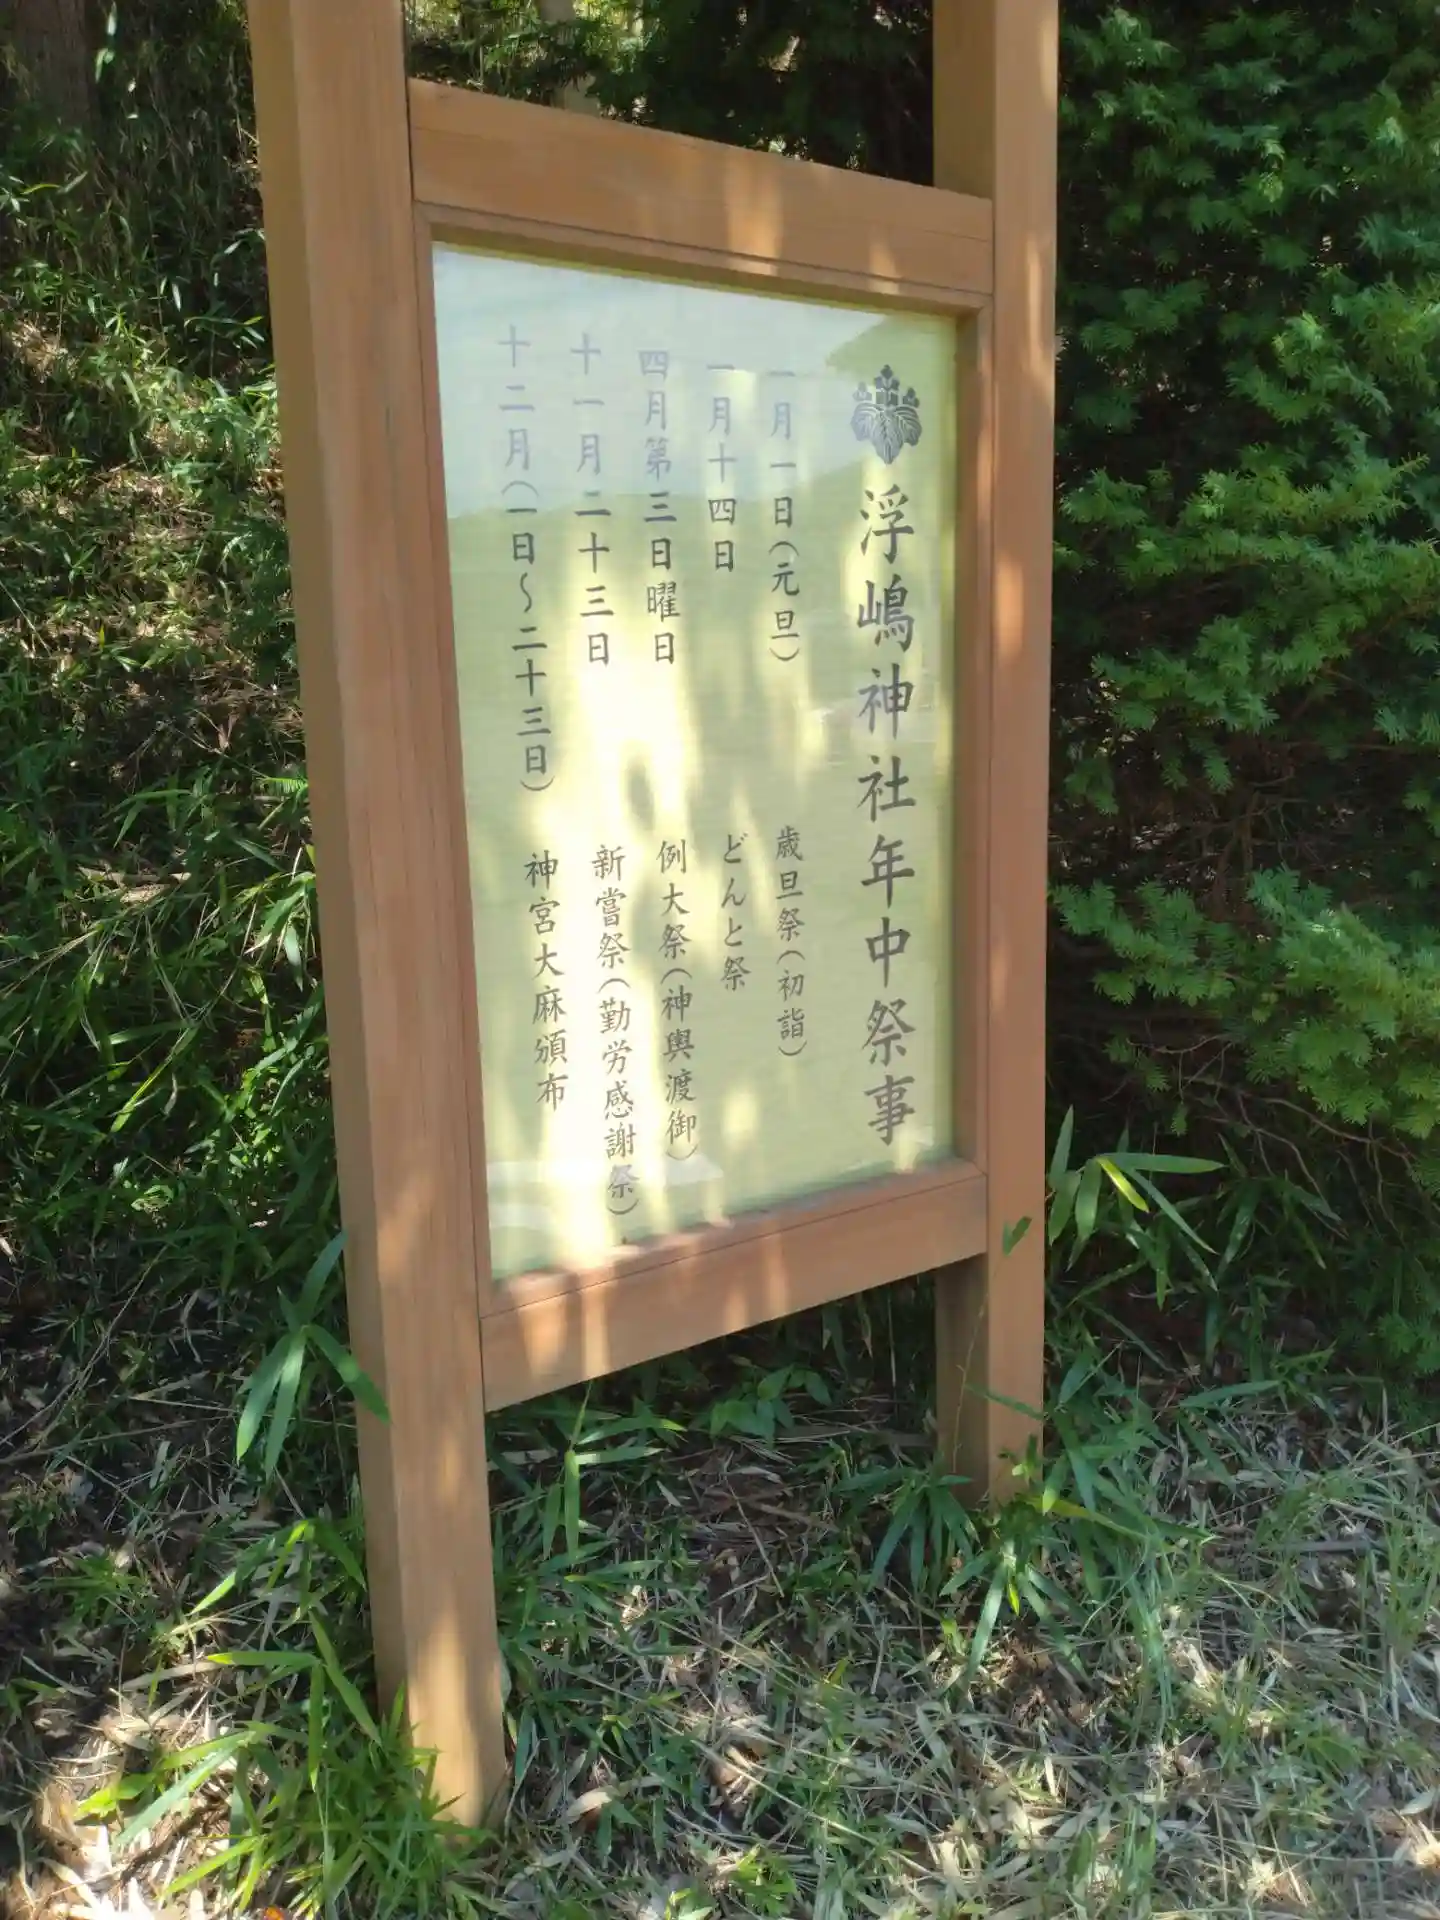 浮嶋神社年中祭事
一月一日（元旦） 歳旦祭（初詣）
一月十四日 どんと祭
四月第三日曜日 例大祭（神輿渡御）
十一月二十三日 新嘗祭（勤労感謝祭）
十二月（一日～二十三日） 神宮大麻頒布